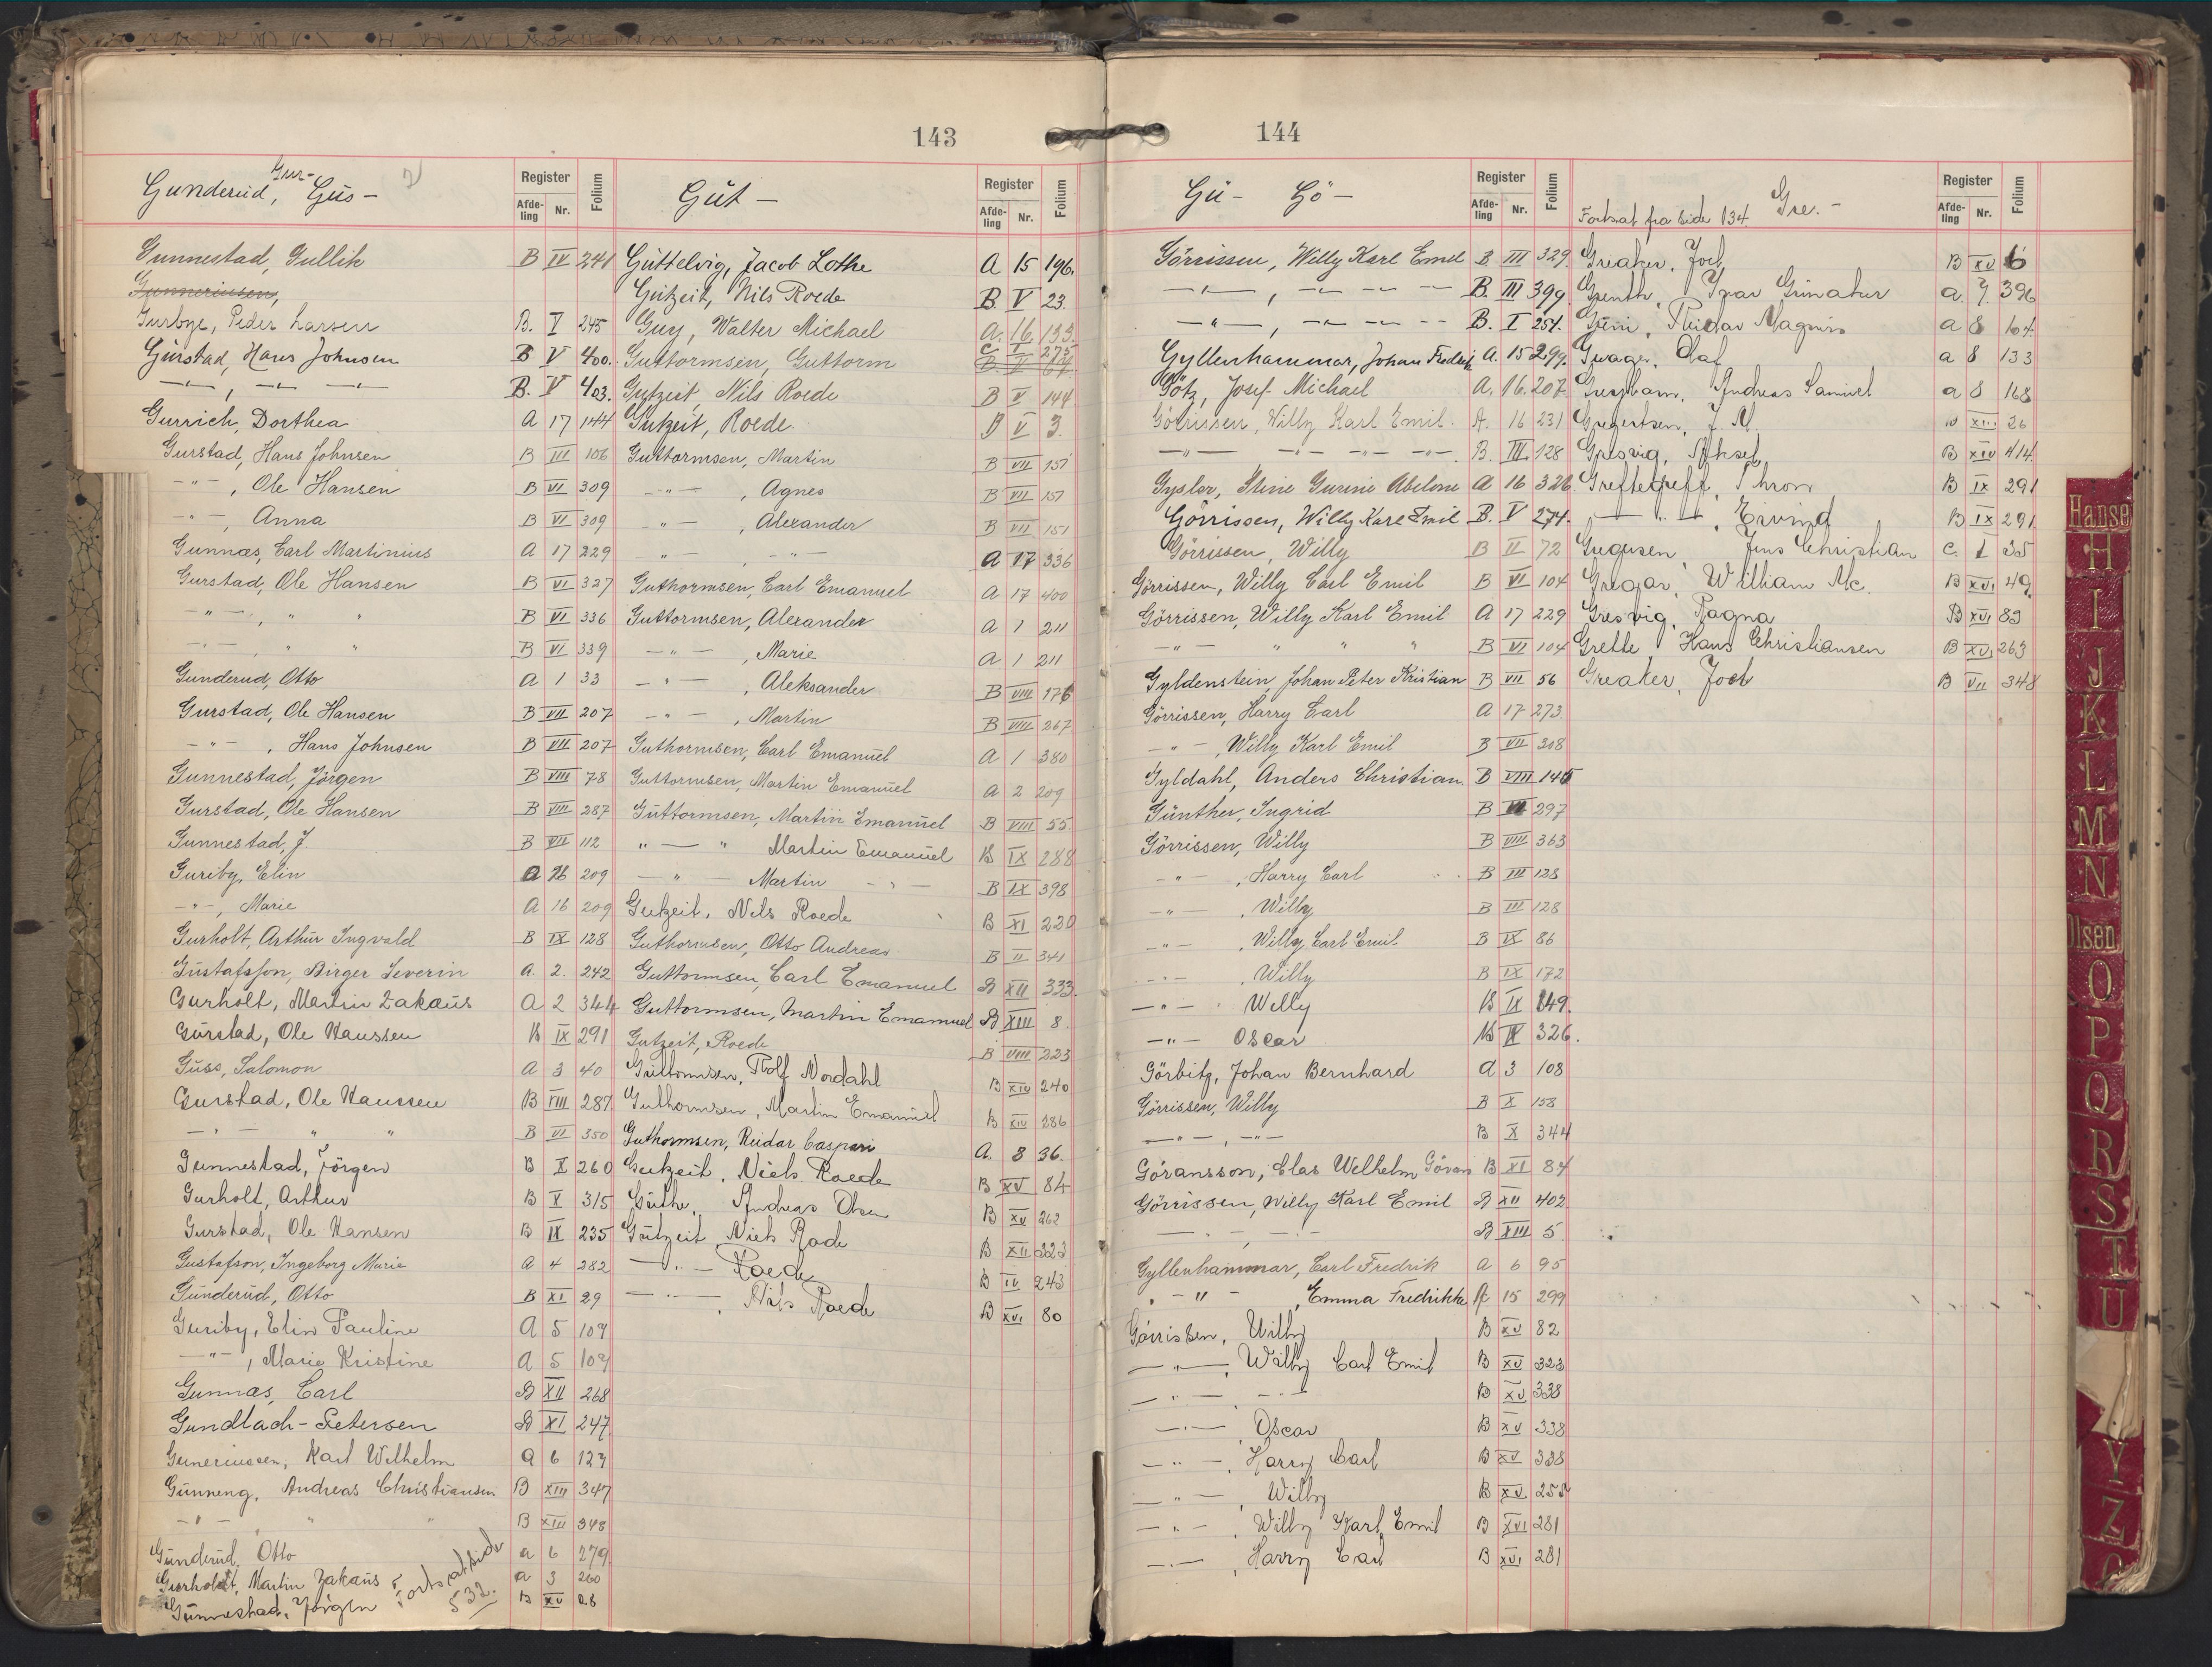 143
Gunderud, Gur- Gus-
Register
Afde-ling Nr. Folium
Gunnestad, Gullik B IV 241
Gunneriusen,
Gurbye, Peder Larsen B. I 245
Gurstad, Hans Johnsen B V 400.
-"-, -"- -"- B. V 403.
Gurrich, Dorthea A 17 144
Gurstad, Hans Johnsen B III 106
-"-, Ole Hansen B VI 309
-"-, Anna B VI 309
Gunnæs, Carl Martinius A 17 229
Gurstad, Ole Hansen B VI 327
-"-, " " B VI 336
-"-, " " B VI 339
Gunderud, Otto A 1 33
Gurstad, Ole Hansen B VII 207
-"-, Hans Johnsen B VII 207
Gunnestad, Jörgen B VIII 78
Gurstad, Ole Hansen B VIII 287
Gunnestad, J. B VII 112
Guriby, Elin A 16 209
-"-, Marie A 16 209
Gurholt, Arthur Ingvald B IX 128
Gustafsson, Birger Severin A. 2. 242
Gurholt, Martin Zakaus A 2 344
Gurstad, Ole Hanssen B IX 291
Guss, Salomon A 3 40
Gurstad, Ole Hanssen B VIII 287
-"- " " B VI 350
Gunnestad, Jörgen B X 260
Gurholt, Arthur B X 315
Gurstad, Ole Hansen B IX 235
Gustafson, Ingeborg Marie A 4 282
Gunderud, Otto B XI 29
Guriby, Elin Pauline A 5 109
-"-, Marie Kristine A 5 109
Gunnæs, Carl B XII 268
Gundlach-Petersen B XI 247
Guneriussen, Karl Wilhelm A 6 123
Gunneng, Andreas Christiansen B XIII 347
-"- " " B XIII 348
Gunderud, Otto a 6 279
Gurholdt, Martin Zakaus a 3 260
Gunnestad, Jörgen B XV 28
Fortsat side 532.
Gut-
Register
Afde-ling Nr. Folium
Guttelvig, Jacob Lothe A 15 196.
Gutzeit, Nils Roede B. V 23.
Guy, Walter Michael A. 16. 133
Guttormsen, Guttorm C I 275
Gutzeit, Nils Roede B V 144
Gutzeit, Roede. B V 3.
Guttormsen, Martin B VII 151
-"-, Agnes B VII 151
-"-, Alexander B VII 151
-"-, -"- A 17 336
Guthormsen, Carl Emanuel A 17 400
Guttormsen, Alexander A 1 211
-"-, Marie A 1 211
-"-, Aleksander B VIII 176
-"-, Martin B VIII 267
Guthormsen, Carl Emanuel A 1 380
Guttormsen, Martin Emanuel A 2 209
Guttormsen, Martin Emanuel B VIII 55.
" - " Martin Emanuel B IX 288
-"- Martin -"- B IX 398
Gutzeit, Nils Roede B XI 220
Guthormsen, Otto Andreas B II 341
Guttormsen, Carl Emanuel B XII 333.
Guttormsen, Martin Emanuel B XIII 8.
Gutzeit, Roede B VIII 223
Guttormsen, Rolf Nordahl B XIV 240
Guthormsen, Martin Emanuel B XIV 286
Guthormsen, Reidar Caspari A. 8 36.
Gutzeit, Niels Roede B XV 84
Guthe, Andreas Olsen B XV 262
Gutzeit Niels Rode B XII 223
-"- Roede B IX 243
-"-, Nils Roede B XVI 80
144
Gü- Gö-
Register
Afde-ling Nr. Folium
Görrissen, Willy Karl Emil B. III 329.
-"-, -"- -"- -"- B. III 399.
-"-, -"- -"- -"- B. I 254.
Gyllenhammar, Johan Fredrik A. 15 299.
Götz, Josef Michael A. 16. 207.
Görrissen, Willy Karl Emil. A. 16 231
-"- -"- -"- -"- B. III 128
Gysler, Stine Gurine Abelone A 16 326
Görrissen, Willy Karl Emil B. V 274.
Görrissen, Willy B II 72
Görrissen, Willy Carl Emil B VI 104
Görrissen, Willy Karl Emil A 17 229
-"- " " " B VI 104
Gyldenstein, Johan Peter Kristian B VII 56
Görrissen, Harry Carl A 17 273
-"-, Willy Karl Emil B VII 308
Gyldahl, Anders Christian B VIII 145
Günther, Ingrid B VII 297
Görrissen, Willy B VIII 363
-"-, Harry Carl B III 128
-"-, Willy B III 128
-"-, Willy Carl Emil B IX 86
-"-, Willy B IX 172
-"- Willy B IX 149.
-"- Oscar B IX 326.
Görbitz, Johan Bernhard A 3 108
Görrissen, Willy B X 158
-"-, -"- B X 344
Göransson, Clas Welhelm Göran B XI 84
Görrissen, Willy Karl Emil B XII 402
-"-, -"- B XIII 5.
Gyllenhammar, Carl Fredrik A 6 95
-"-, Emma Fredrikke A 15 299
Görrissen, Willy B XV 82
-"-, Willy Carl Emil B XV 323
-"- -"- B XV 338
-"- Oscar B XV 338
-"-, Harry Carl B XV 338
-"-, Willy B XV 255
-"-, Willy Karl Emil B XVI 281
-"-, Harry Carl B XVI 281
Fortsat fra side 134. Gre.-
Register
Afde-ling Nr. Folium
Greaker, Joel B XV 6
a. 7. 396
a 8 104
a 8 133
Andreas Samuel a 8 168
Gregertsen, J. M. XIII 26
Aksel B XIV 414
Greftegreff, Thron B IX 291
-"-, Eivind B IX 291
Gregersen, Jens Christian C. 1 35
Gregar, William Mc. B XVI 49
Gresvig, Ragna B XVI 83
Grette, Hans Christiansen B XVI 263
Greaker, Joel B VII 348
Hanse
H
I
J
K
L
M
N
Olsen
O
P
Q
R
S
T
U
Y
Z